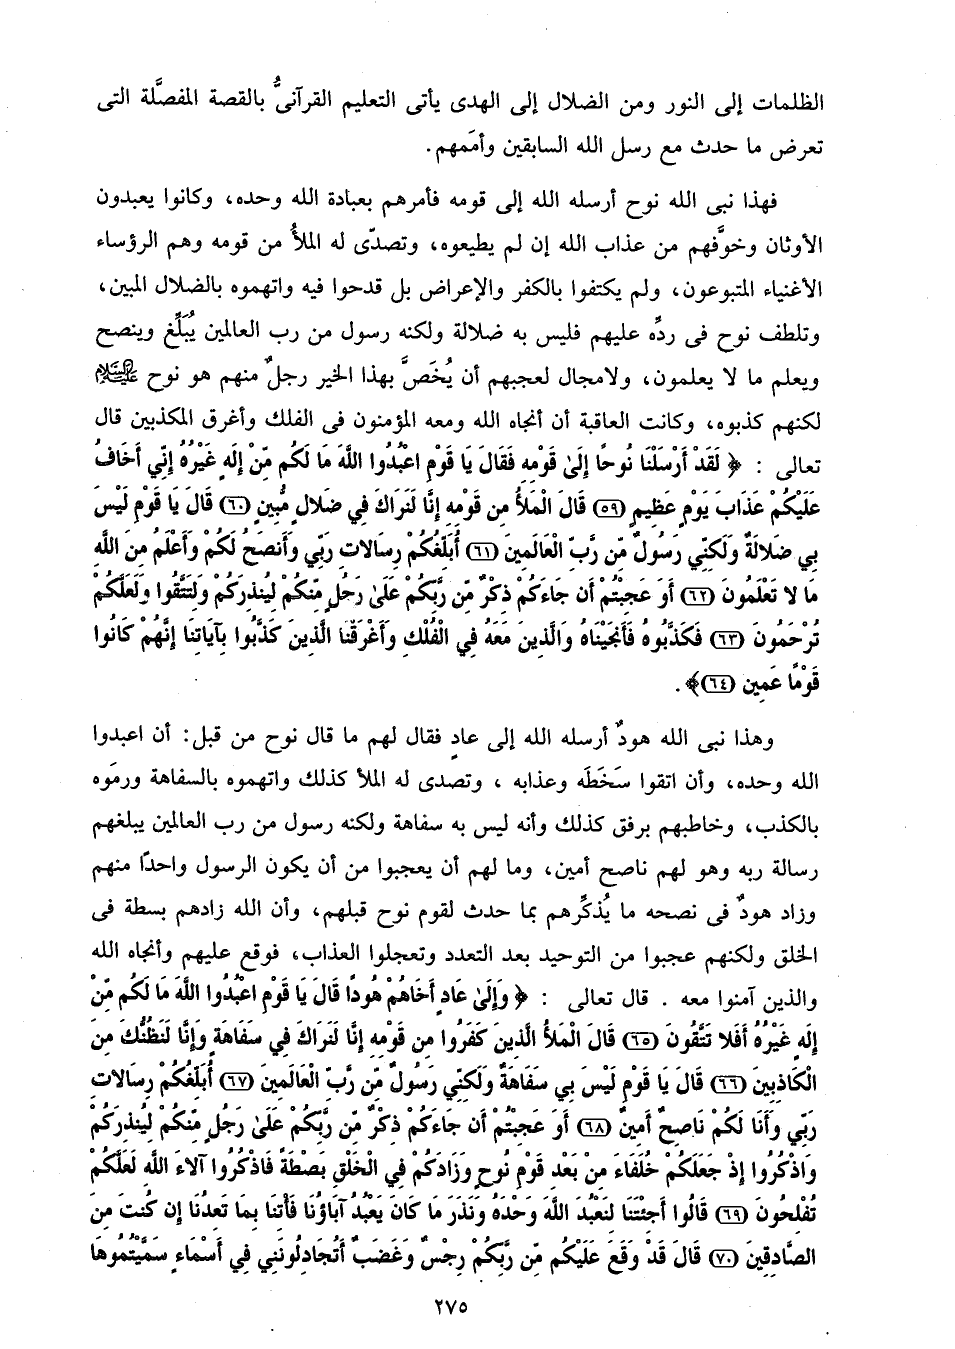 الظلمات إلى النور ومن الضلال إلى الهدى يأتى التعليم القرآنىُّ بالقصة المفصَّلة التى
تعرض ما حدث مع رسل الله السابقين وأمَمهم.
فهذا نبى الله نوح أرسله الله إلى قومه فأمرهم بعبادة الله وحده، وكانوا يعبدون
الأوثان وخوَّفهم من عذاب الله إن لم يطيعوه، وتصدّى له الملأُ من قومه وهم الرؤساء
الأغنياء المتبوعون، ولم يكتفوا بالكفر والإعراض بل قدحوا فيه واتهموه بالضلال المبين،
وتلطف نوح فى ردِّه عليهم فليس به ضلالة ولكنه رسول من رب العالمين يُبَلِّغ وينصح
ويعلم ما لا يعلمون، ولامجال لعجبهم أن يُخَصَّ بهذا الخير رجلٌ منهم هو نوح عليه السلام
لكنهم كذبوه، وكانت العاقبة أن أنجاه الله ومعه المؤمنون فى الفلك وأغرق المكذبين قال
تعالى : ﴿ لَقَدْ أَرْسَلْنَا نُوحًا إِلَىٰ قَوْمِهِ فَقَالَ يَا قَوْمِ اعْبُدُوا اللَّهَ مَا لَكُم مِّنْ إِلَهٍ غَيْرُهُ إِنِّي أَخَافُ
عَلَيْكُمْ عَذَابَ يَوْمٍ عَظِيمٍ (٥٩) قَالَ الْمَلأُ مِن قَوْمِهِ إِنَّا لَنَرَاكَ فِي ضَلالٍ مُّبِينٍ (٦٠) قَالَ يَا قَوْمِ لَيْسَ
بِي ضَلالَةٌ وَلَكِنِّي رَسُولٌ مِّن رَّبِّ الْعَالَمِينَ (٦١) أُبَلِّغُكُمْ رِسَالاتِ رَبِّي وَأَنصَحُ لَكُمْ وَأَعْلَمُ مِنَ اللَّهِ
مَا لا تَعْلَمُونَ (٦٢) أَوَ عَجِبْتُمْ أَن جَاءَكُمْ ذِكْرٌ مِّن رَّبِّكُمْ عَلَىٰ رَجُلٍ مِّنكُمْ لِيُنذِرَكُمْ وَلِتَتَّقُوا وَلَعَلَّكُمْ
تُرْحَمُونَ (٦٣) فَكَذَّبُوهُ فَأَنجَيْنَاهُ وَالَّذِينَ مَعَهُ فِي الْفُلْكِ وَأَغْرَقْنَا الَّذِينَ كَذَّبُوا بِآيَاتِنَا إِنَّهُمْ كَانُوا
قَوْمًا عَمِينَ (٦٤)﴾.
وهذا نبى الله هودٌ أرسله الله إلى عادٍ فقال لهم ما قال نوح من قبل: أن اعبدوا
الله وحده، وأن اتقوا سَخَطَه وعذابه ، وتصدى له الملأ كذلك واتهموه بالسفاهة ورمَوه
بالكذب، وخاطبهم برفق كذلك وأنه ليس به سفاهة ولكنه رسول من رب العالمين يبلغهم
رسالة ربه وهو لهم ناصح أمين، وما لهم أن يعجبوا من أن يكون الرسول واحدًا منهم
وزاد هودٌ فى نصحه ما يُذكِّرهم بما حدث لقوم نوح قبلهم، وأن الله زادهم بسطة فى
الخلق ولكنهم عجبوا من التوحيد بعد التعدد وتعجلوا العذاب، فوقع عليهم وأنجاه الله
والذين آمنوا معه . قال تعالى : ﴿ وَإِلَىٰ عَادٍ أَخَاهُمْ هُودًا قَالَ يَا قَوْمِ اعْبُدُوا اللَّهَ مَا لَكُم مِّنْ
إِلَهٍ غَيْرُهُ أَفَلا تَتَّقُونَ (٦٥) قَالَ الْمَلأُ الَّذِينَ كَفَرُوا مِن قَوْمِهِ إِنَّا لَنَرَاكَ فِي سَفَاهَةٍ وَإِنَّا لَنَظُنُّكَ مِنَ
الْكَاذِبِينَ (٦٦) قَالَ يَا قَوْمِ لَيْسَ بِي سَفَاهَةٌ وَلَكِنِّي رَسُولٌ مِّن رَّبِّ الْعَالَمِينَ (٦٧) أُبَلِّغُكُمْ رِسَالاتِ
رَبِّي وَأَنَا لَكُمْ نَاصِحٌ أَمِينٌ (٦٨) أَوَ عَجِبْتُمْ أَن جَاءَكُمْ ذِكْرٌ مِّن رَّبِّكُمْ عَلَىٰ رَجُلٍ مِّنكُمْ لِيُنذِرَكُمْ
وَاذْكُرُوا إِذْ جَعَلَكُمْ خُلَفَاءَ مِنْ بَعْدِ قَوْمِ نُوحٍ وَزَادَكُمْ فِي الْخَلْقِ بَصْطَةً فَاذْكُرُوا آلاءَ اللَّهِ لَعَلَّكُمْ
تُفْلِحُونَ (٦٩) قَالُوا أَجِئْتَنَا لِنَعْبُدَ اللَّهَ وَحْدَهُ وَنَذَرَ مَا كَانَ يَعْبُدُ آبَاؤُنَا فَأْتِنَا بِمَا تَعِدُنَا إِن كُنتَ مِنَ
الصَّادِقِينَ (٧٠) قَالَ قَدْ وَقَعَ عَلَيْكُم مِّن رَّبِّكُمْ رِجْسٌ وَغَضَبٌ أَتُجَادِلُونَنِي فِي أَسْمَاءٍ سَمَّيْتُمُوهَا
٢٧٥